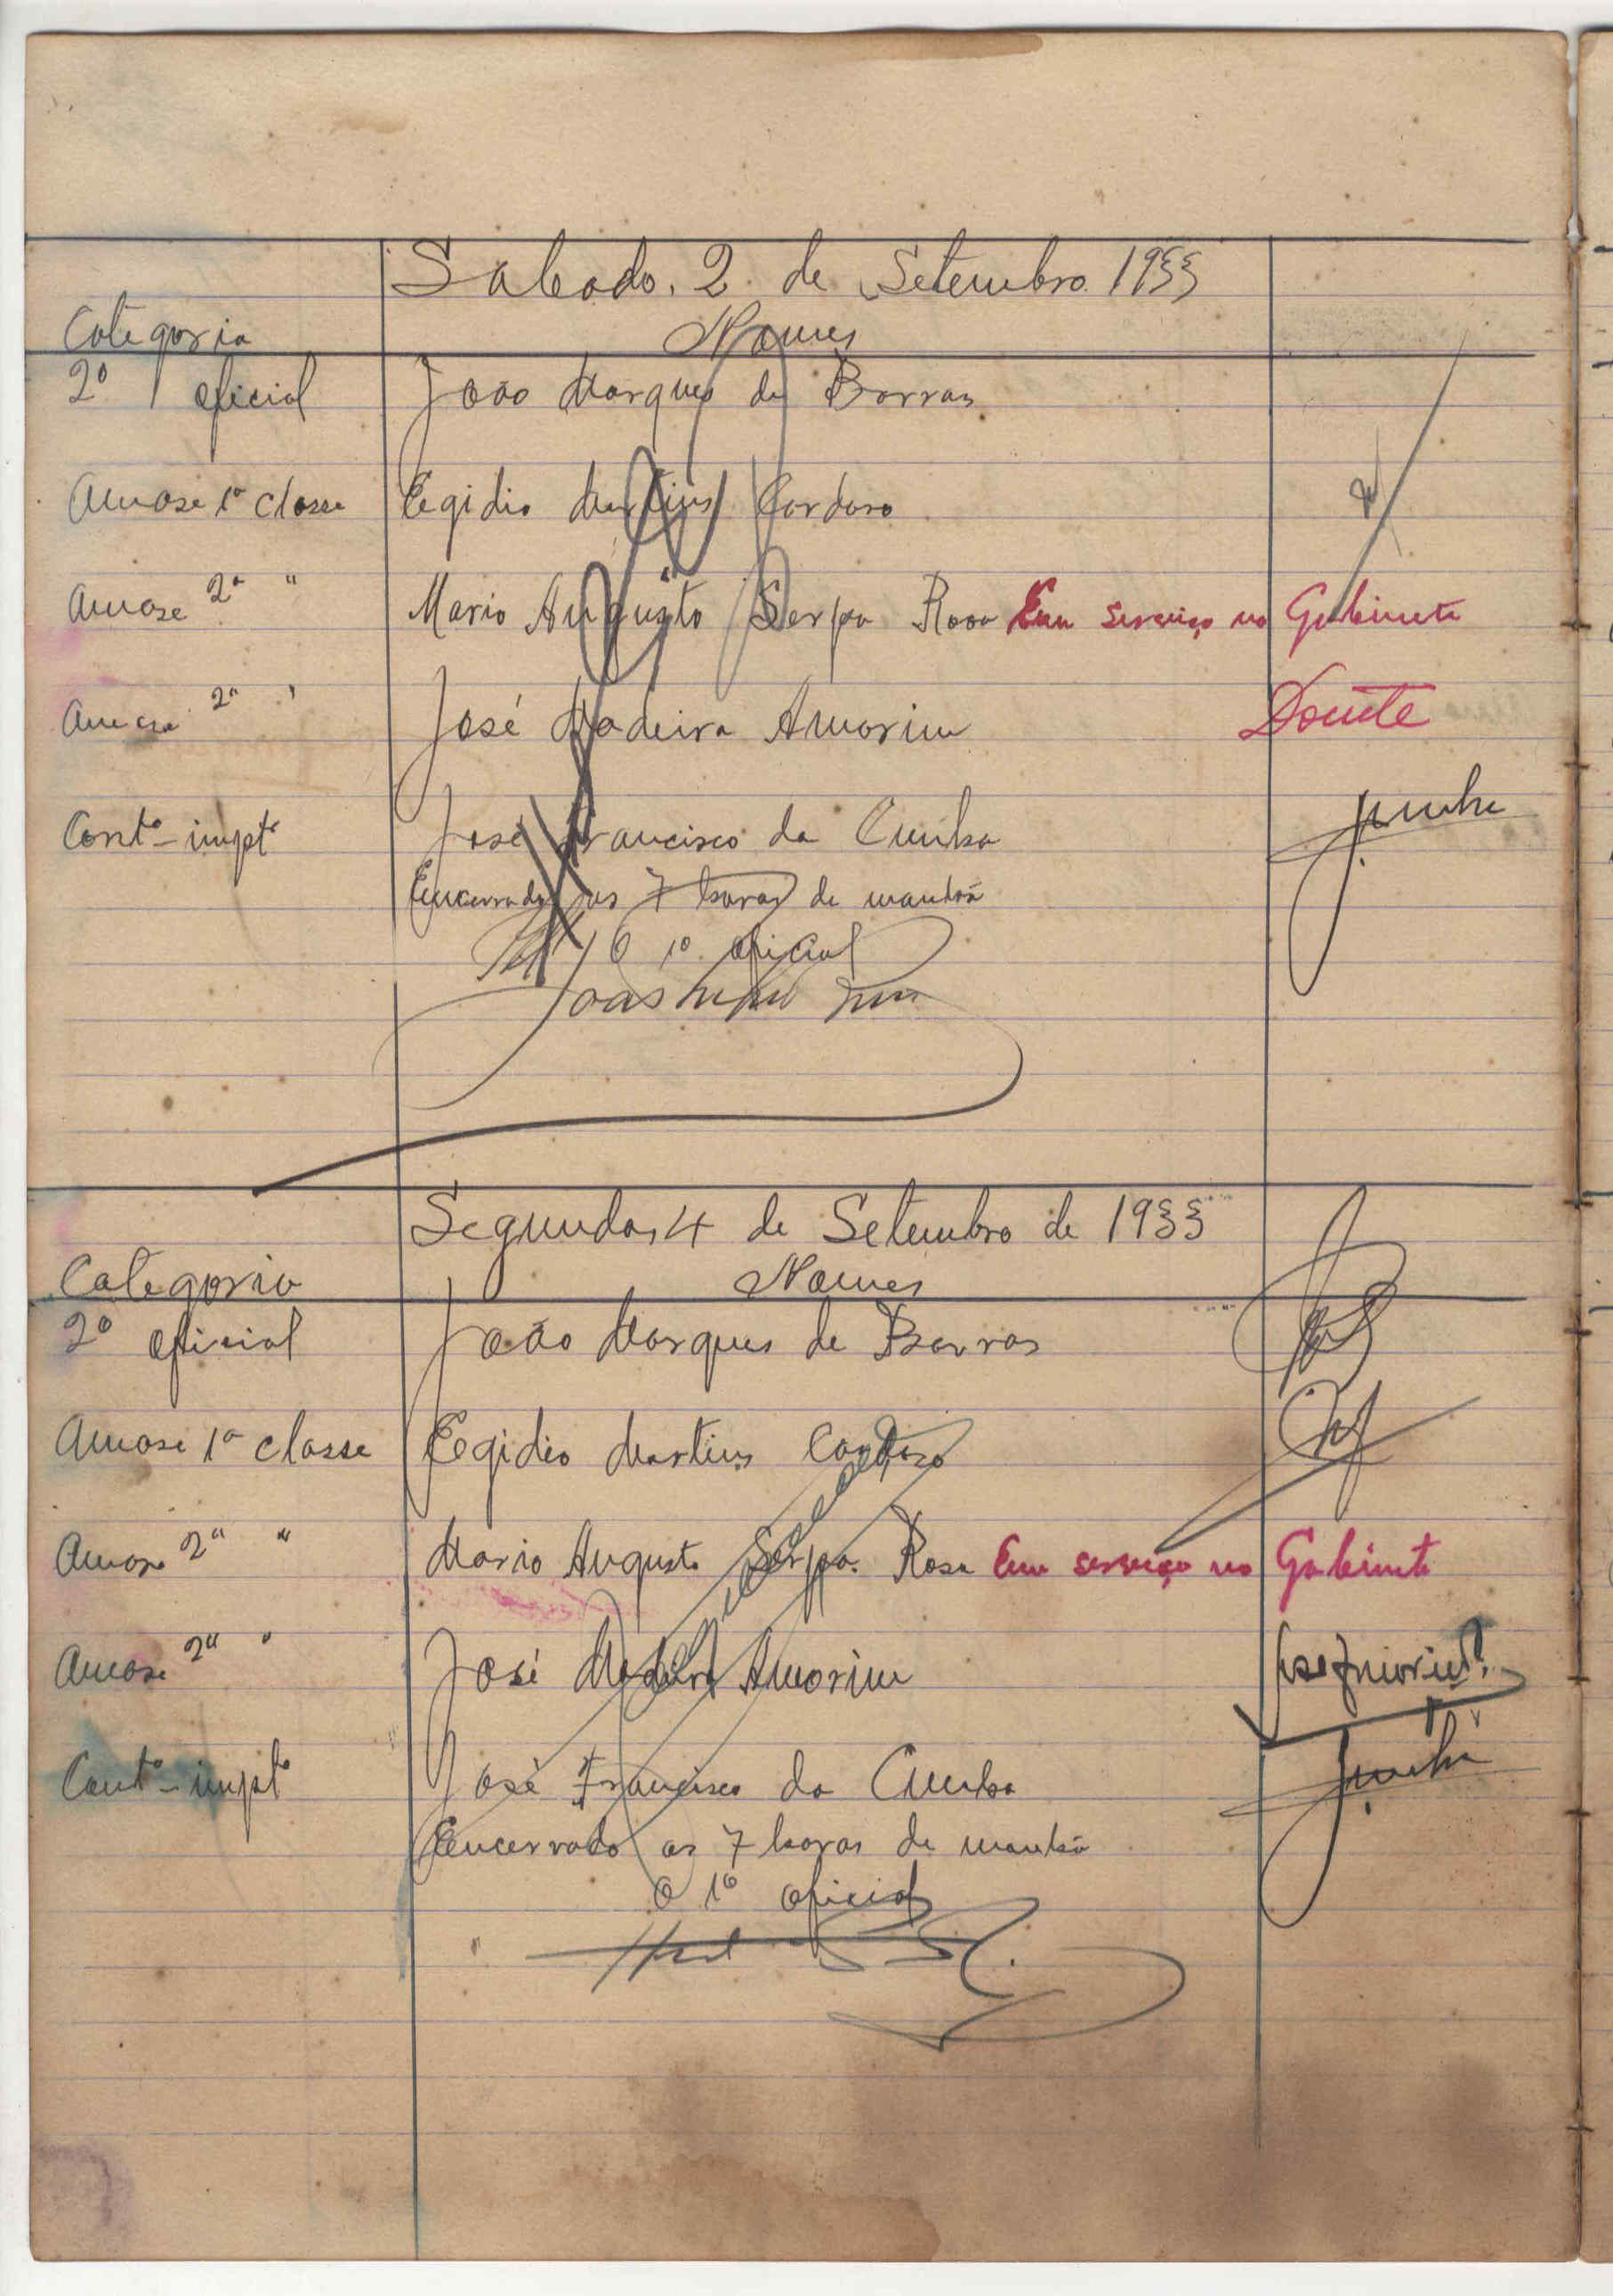 Sabado, 2 de Setembro 1933
Categoria Nomes
2º oficial João Marques de Barros
Amose 1ª classe Egidio Martins Cardoso
Amose 2ª " Mario Augusto Serpa Rosa Em serviço no Gabinete
2ª " José Madeira Amorim Doente
Contº-impte José Francisco da Cunha
Encerrado as 7 horas de manhã
O 1º oficial
Segunda, 4 de Setembro de 1933
Categoria Nomes
2º oficial João Marques de Barros
Amose 1ª classe Egidio Martins Cardoso
Amose 2ª " Mario Augusto Serpa Rosa Em serviço no Gabinete
Amose 2ª " José Madeira Amorim
Contº-impte José Francisco da Cunha
Encerrado as 7 horas de manhã
O 1º oficial